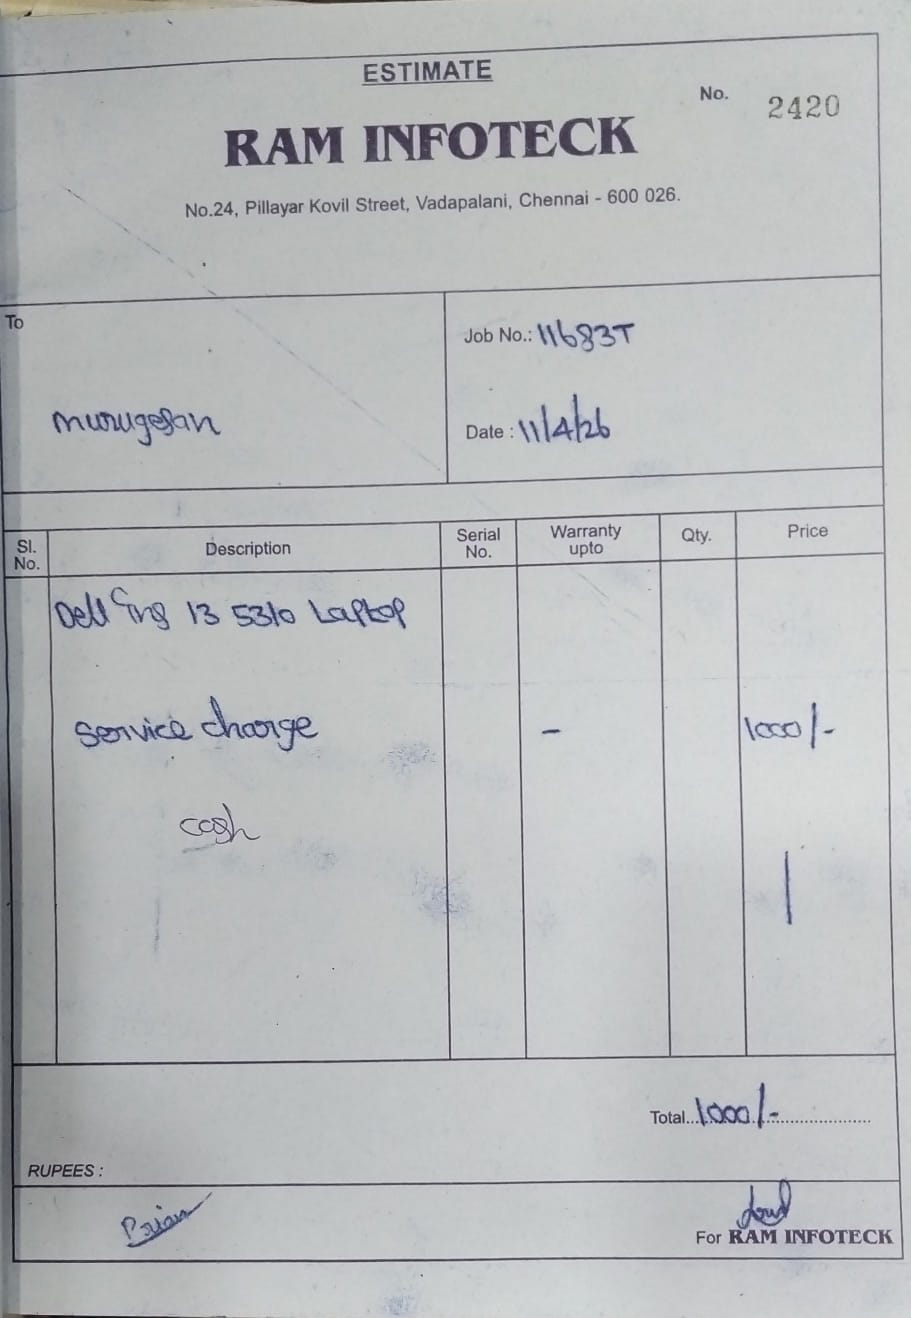 ESTIMATE
No. 2420
RAM INFOTECK
No.24, Pillayar Kovil Street, Vadapalani, Chennai - 600 026.
To
Murugesan
Job No.: 11683T
Date : 11/4/26
Sl. No. Description Serial No. Warranty upto Qty. Price
Dell ing 13 5310 Laptop
Service charge - 1000/-
cash
Total... 1000/-
RUPEES :
For RAM INFOTECK